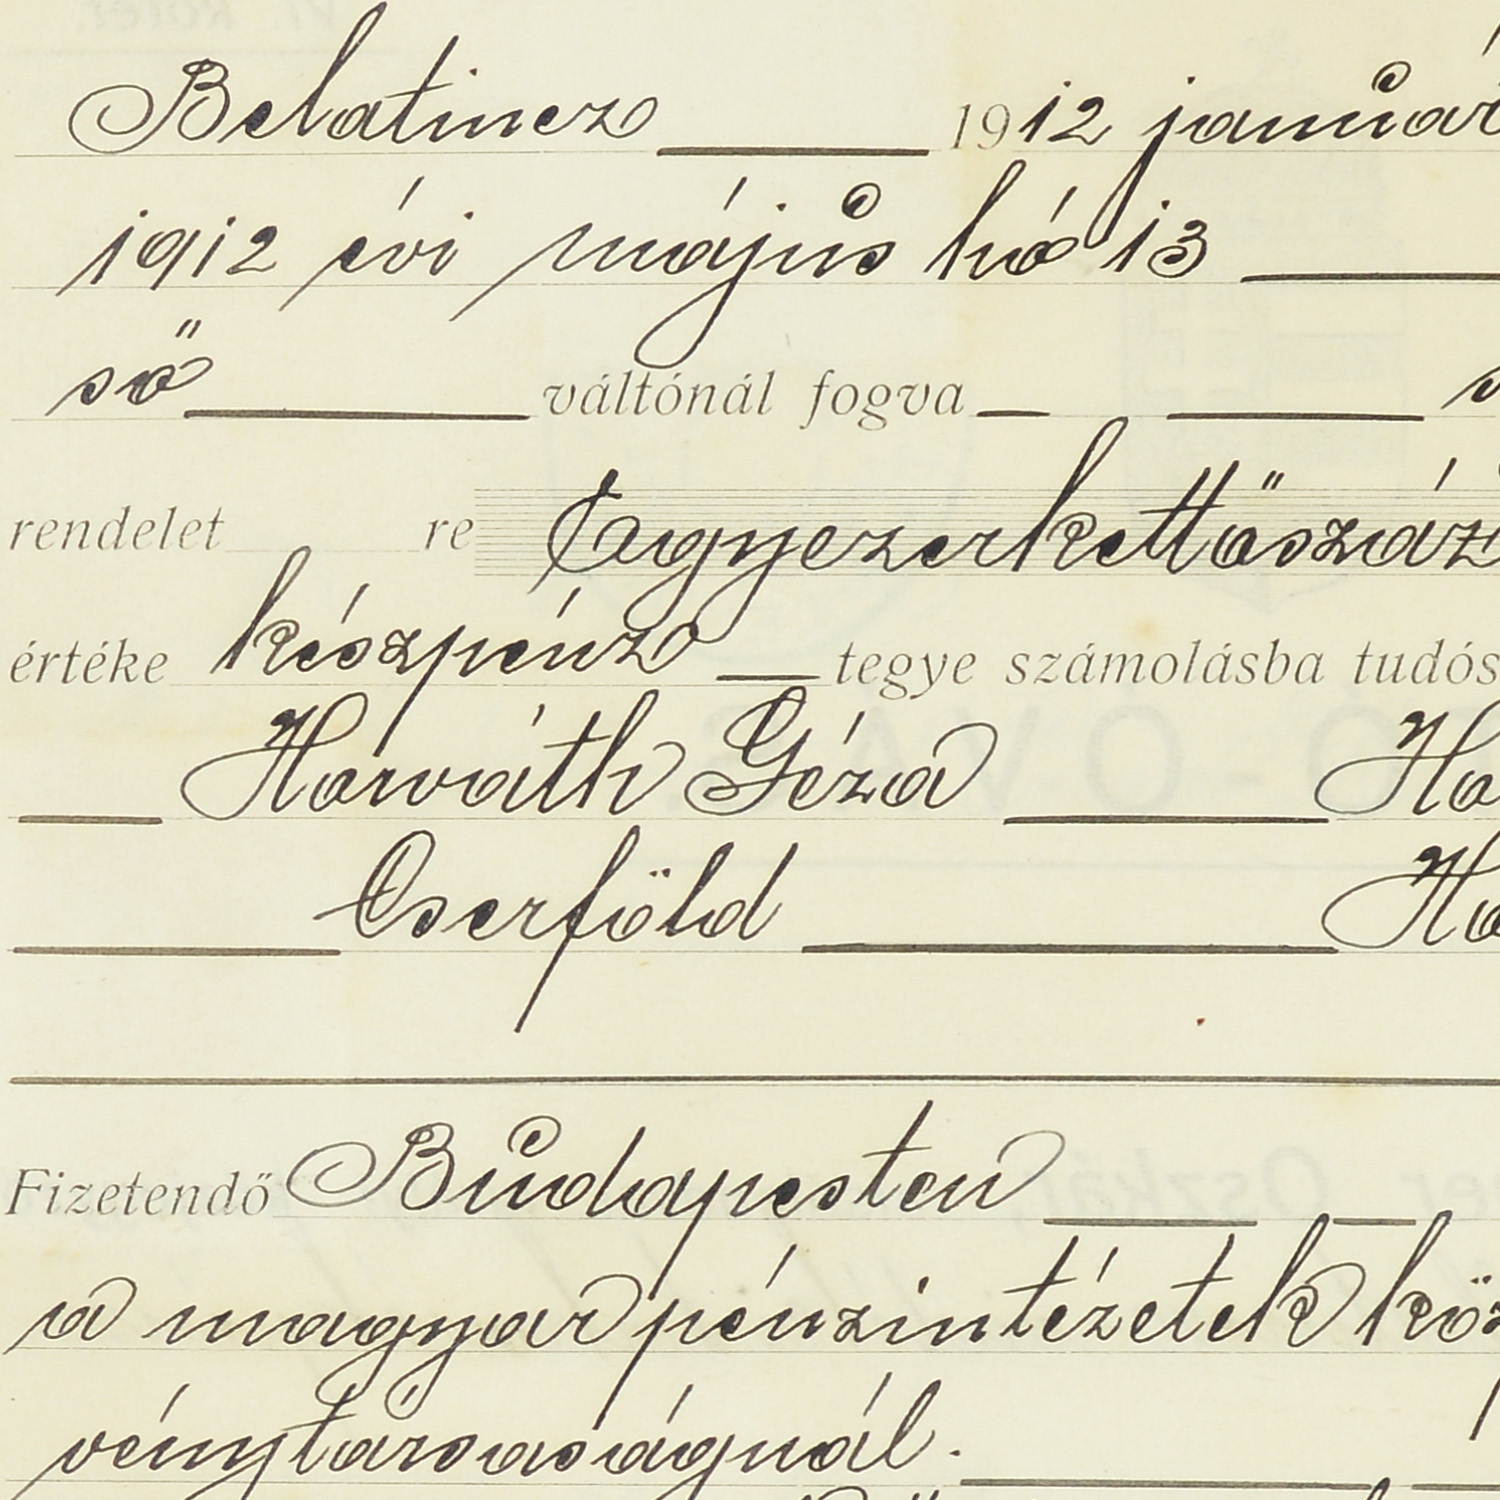 Belatincz 1912 január
1912 évi május hó 13
ső váltónál fogva
rendelet re Egyezerkettőszáz
értéke készpénz tegye számolásba tudós
Horváth Géza Ho
Cserföld Ho
Fizetendő Budapesten
a magyar pénzintézetek köz
vénytársaságnál.